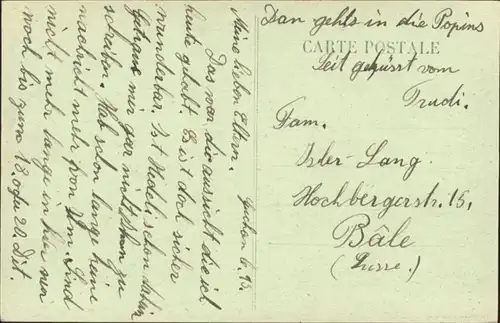 Luchon 6. 9.
Meine lieben Eltern.
Das war die aussicht die ich
heute gehabt. Es ist doch sicher
wunderbar. Ist Hedi schon dahin
mir gar nicht zu
schreiben. Hab schon lange keine
nachricht mehr von Ihm. Sind
nicht mehr lange in hier nur
noch bis zum 18. oder 20. Dit.
Dan gehts in die Popins
CARTE POSTALE
Seit geküsst vom
Trudi.
Fam.
Isler-Lang
Hochbergerstr. 15,
Bâle
(Suisse.)